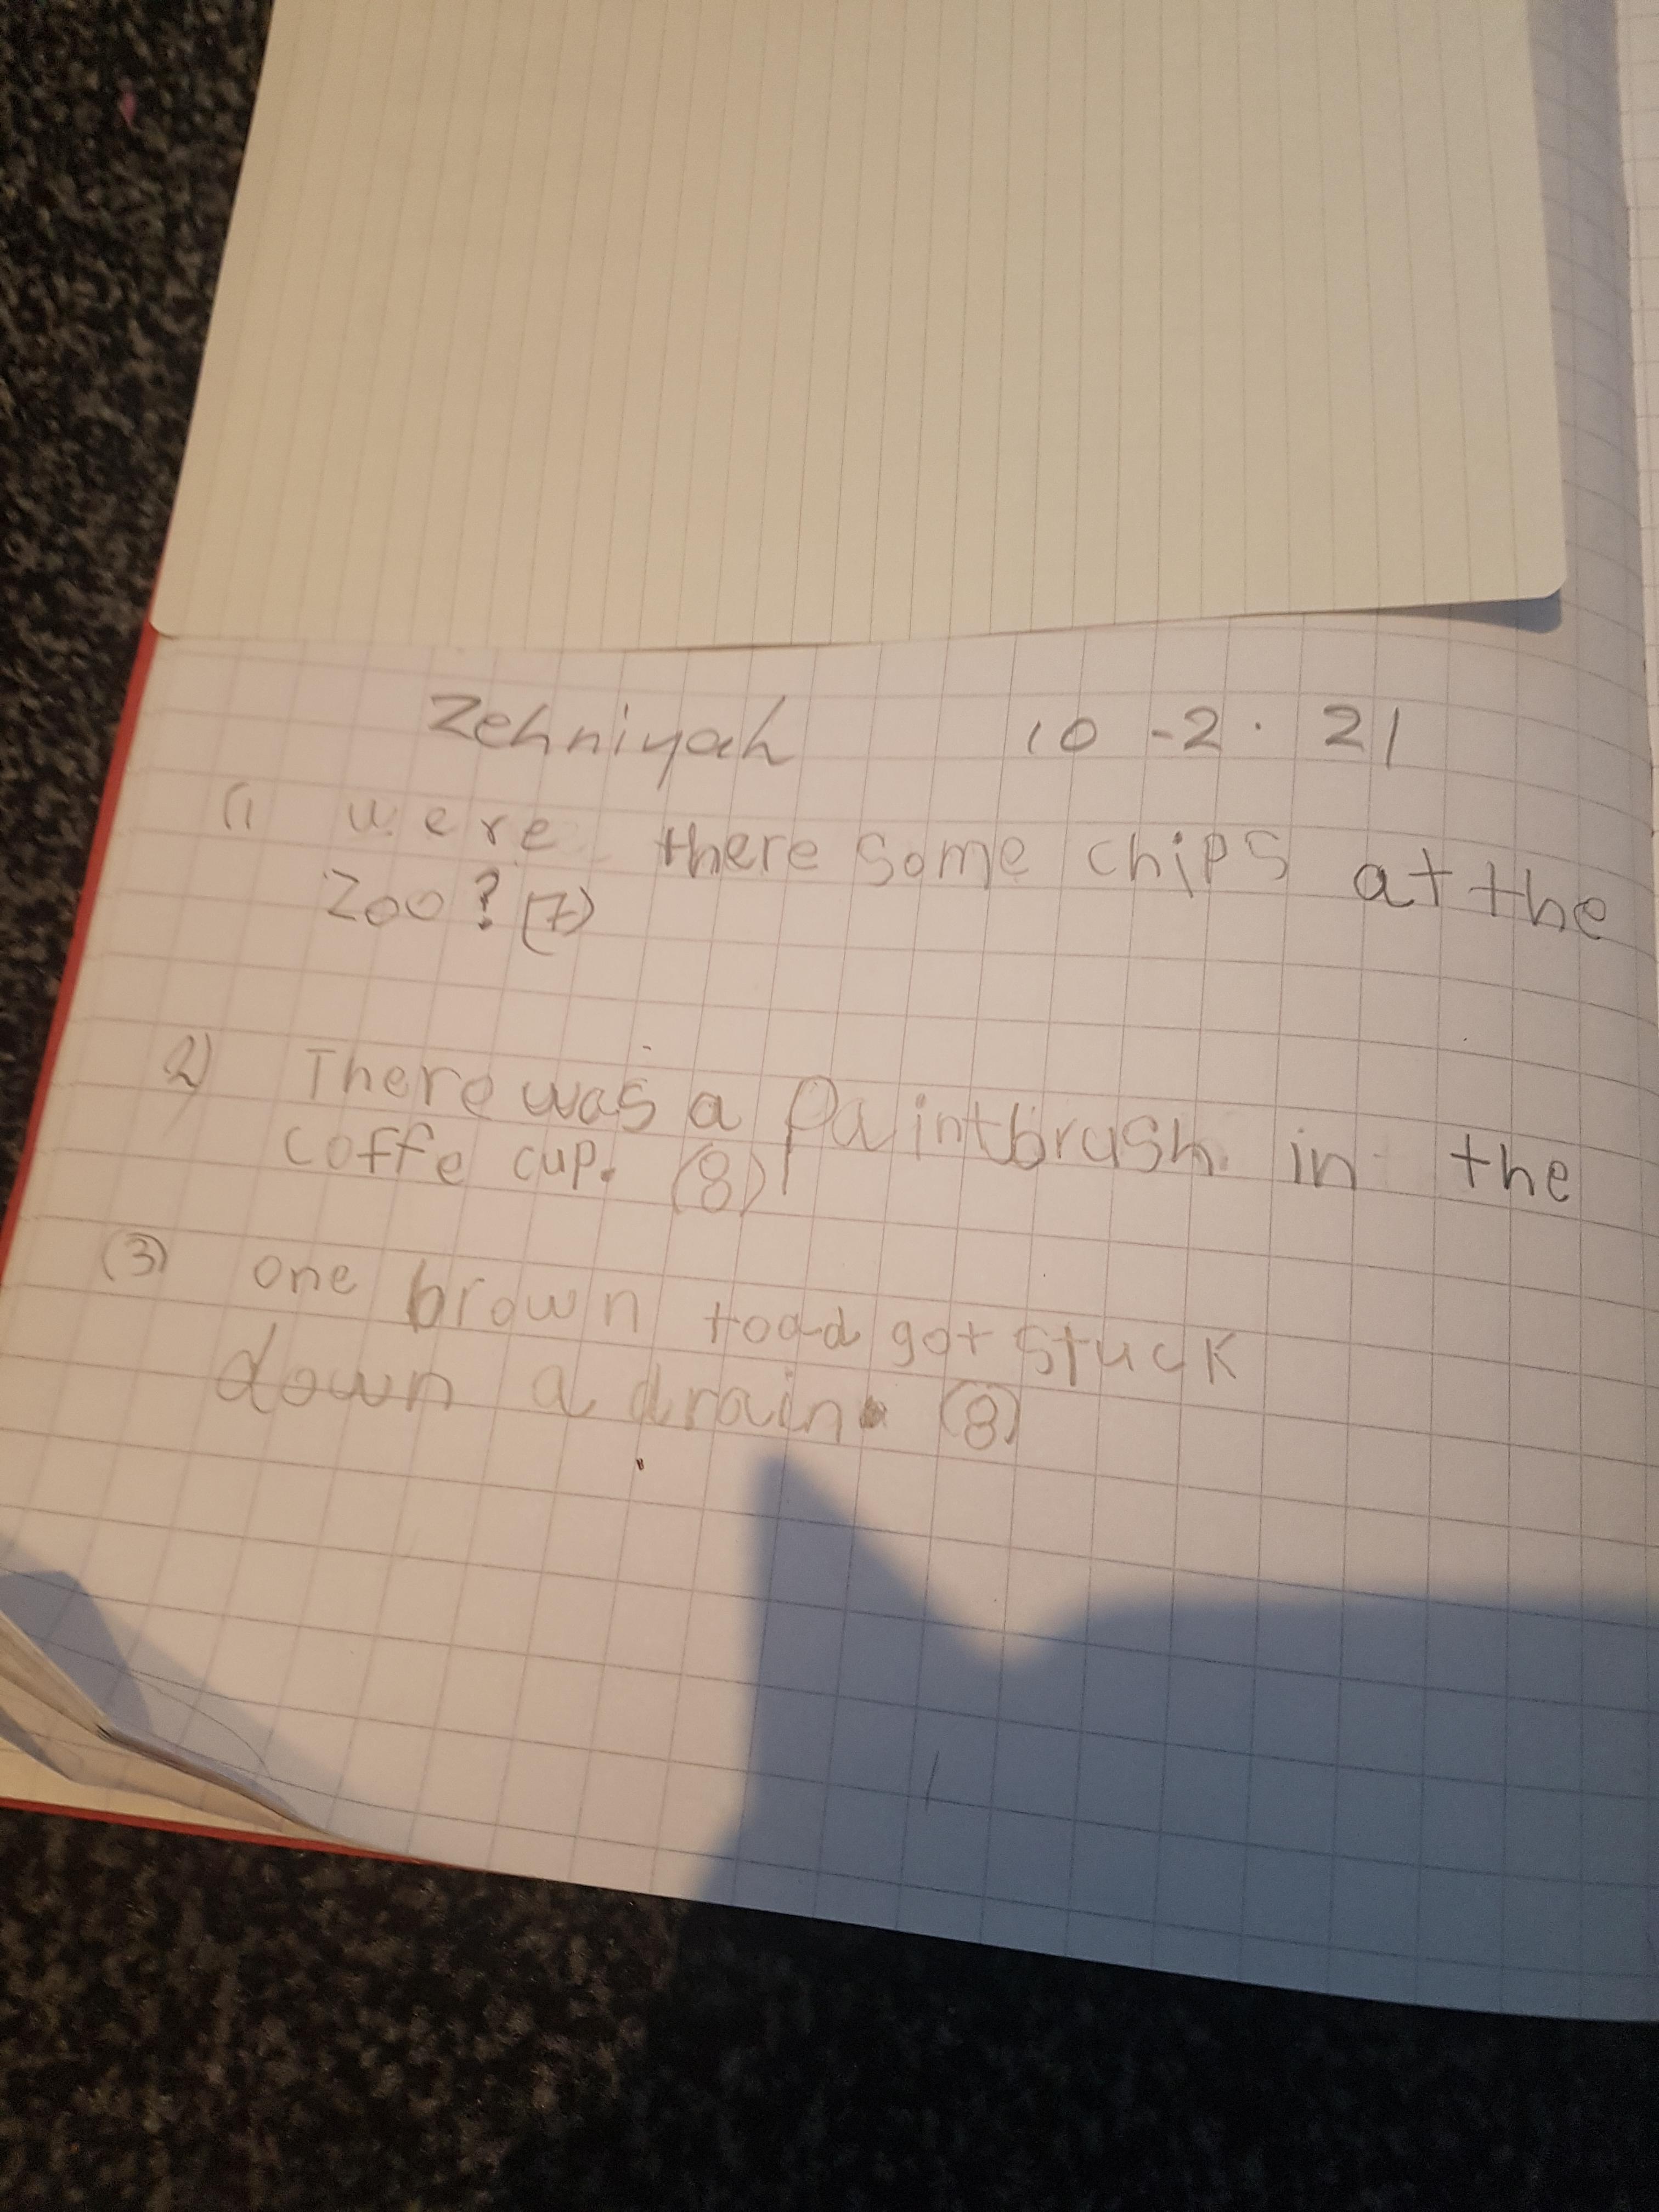 Zehniyah 10-2.21
(1 were there some chips at the
Zoo? (7)
2) There was a Paintbrush in the
coffe cup. (8)
(3) one brown toad got stuck
down a drain. (8)